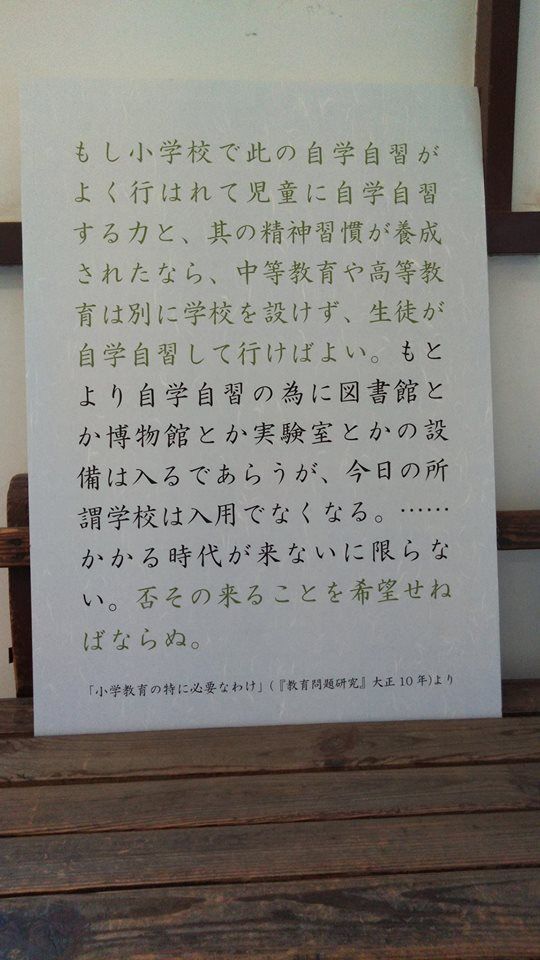 もし小学校で此の自学自習が
よく行はれて児童に自学自習
する力と、其の精神習慣が養成
されたなら、中等教育や高等教
育は別に学校を設けず、生徒が
自学自習して行けばよい。もと
より自学自習の為に図書館と
か博物館とか実験室とかの設
備は入るであらうが、今日の所
謂学校は入用でなくなる。……
かかる時代が来ないに限らな
い。否その来ることを希望せね
ばならぬ。
「小学教育の特に必要なわけ」(『教育問題研究』大正10年)より